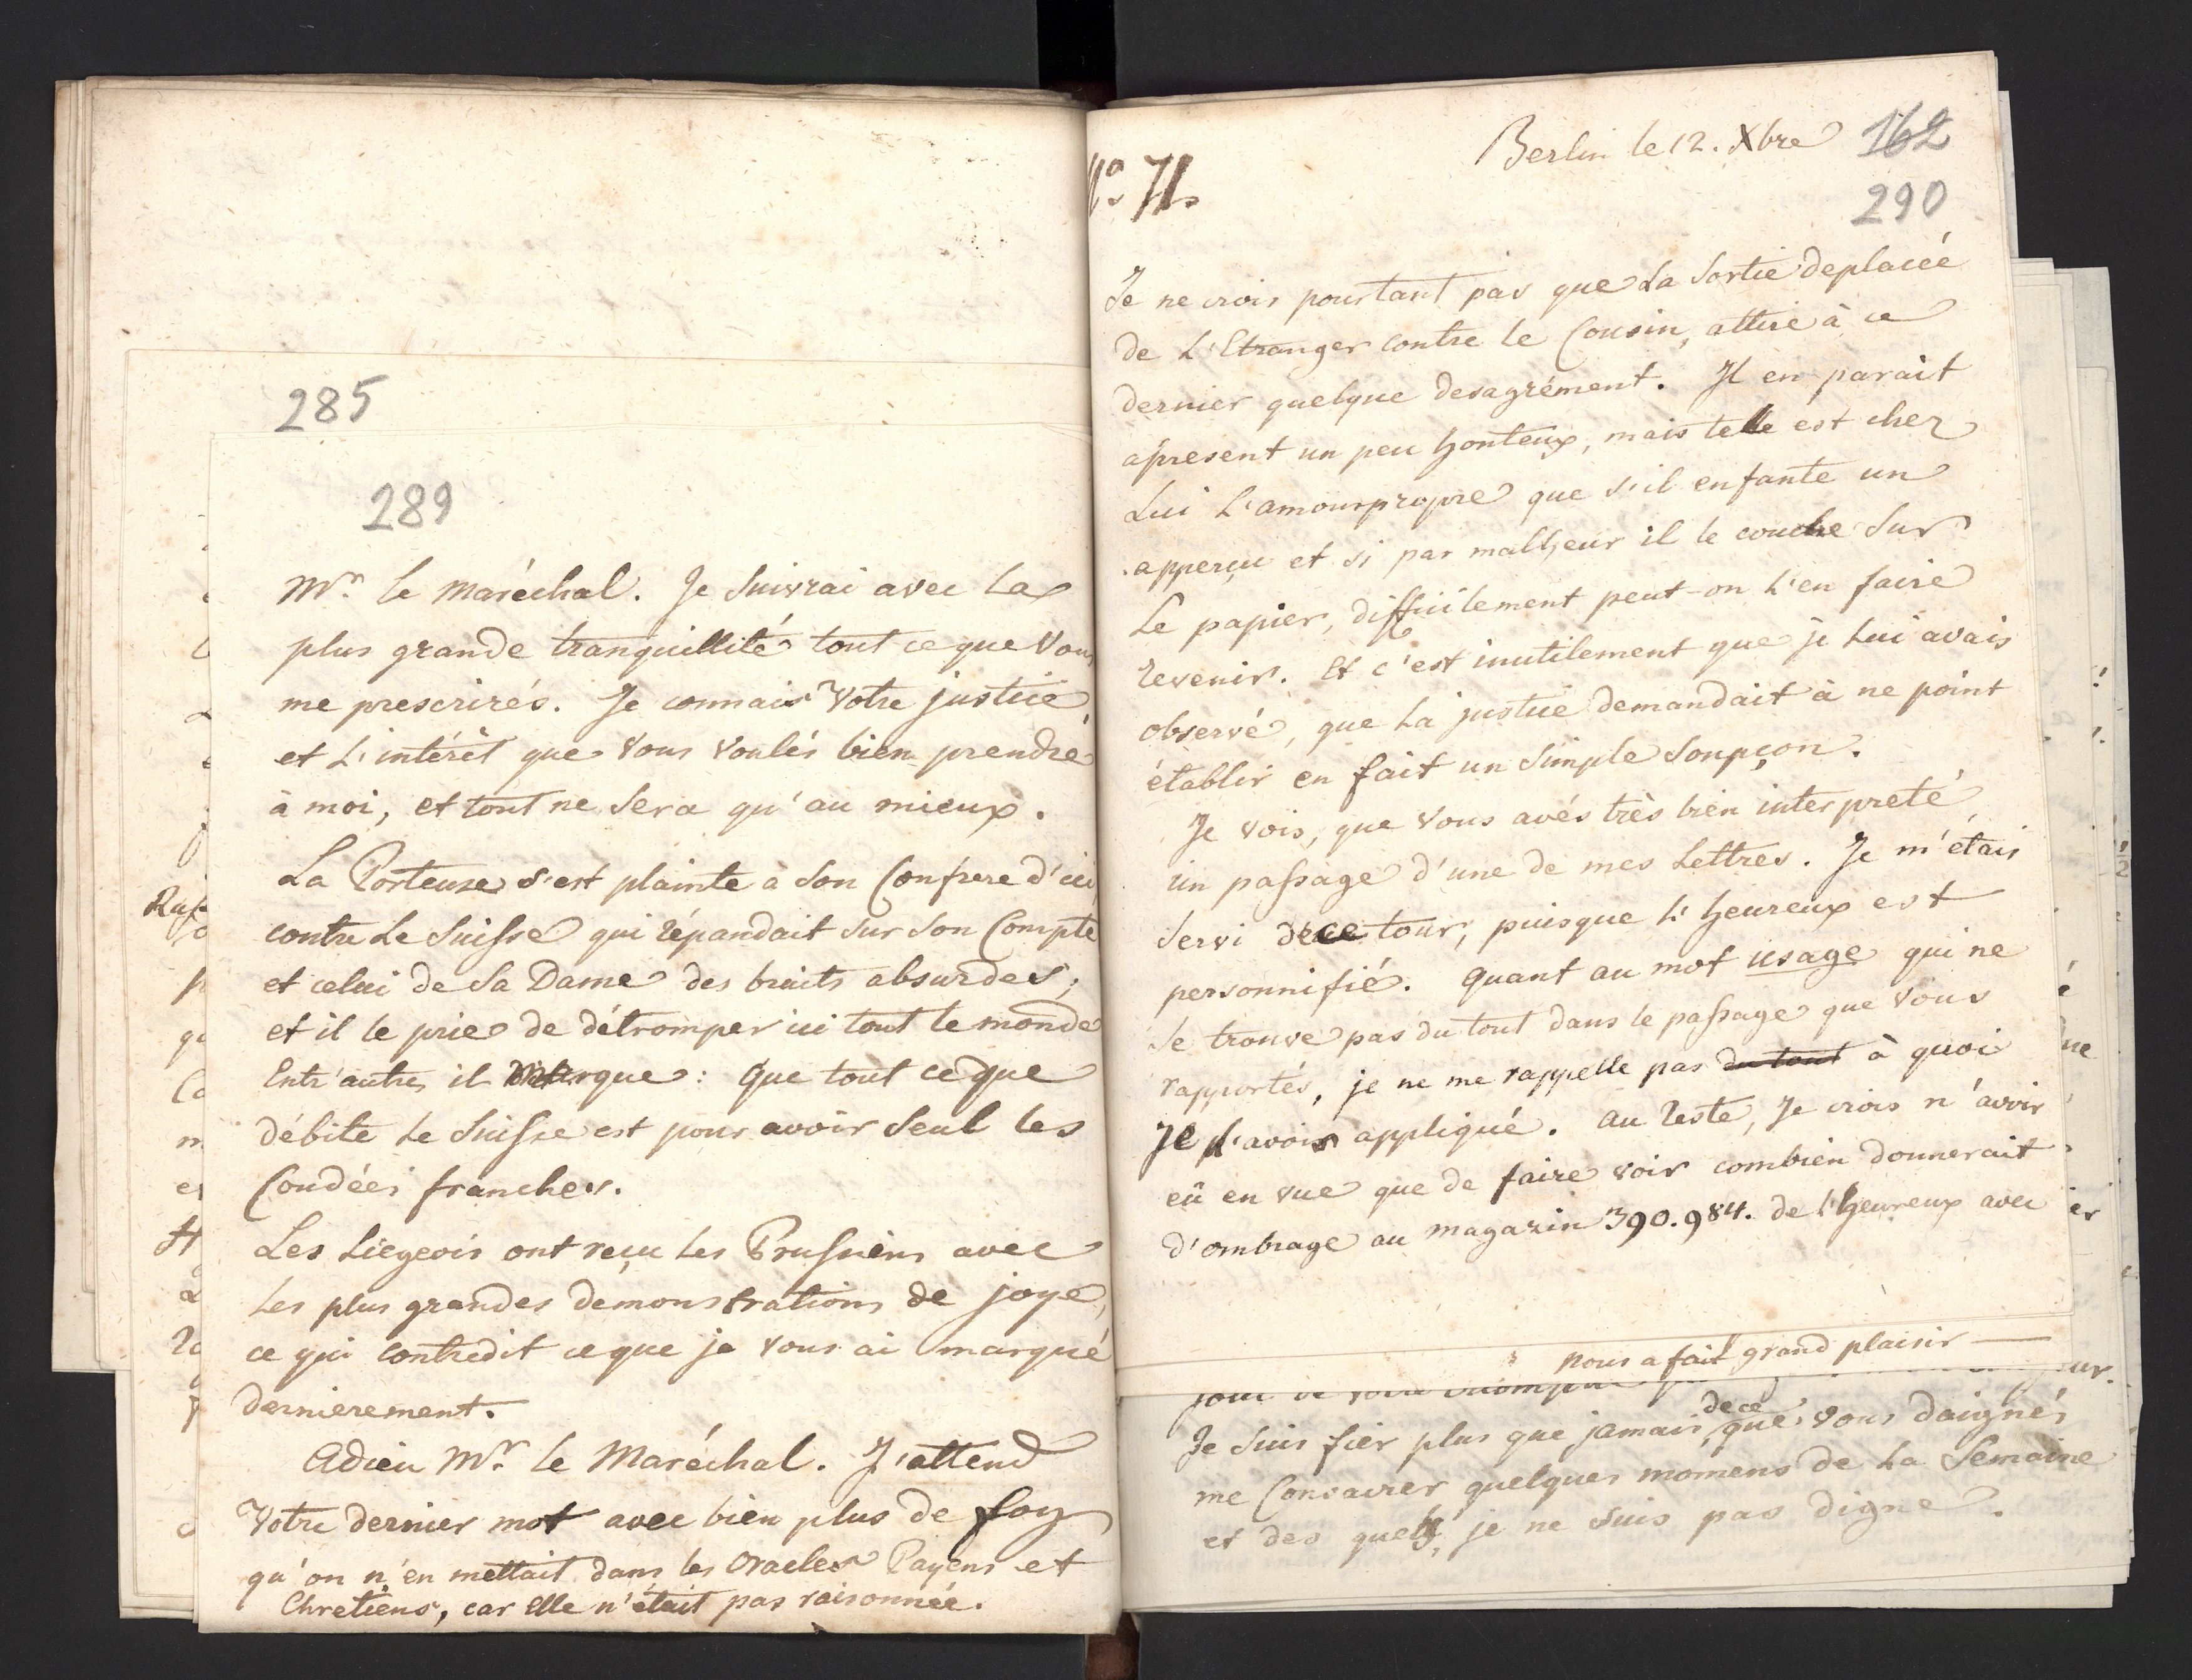 285
289
Mr. le Maréchal. Je suivrai avec la
plus grande tranquillité tout ce que Vous
me prescrirés. Je connais Votre justice,
et l'intérêt que vous voulés bien prendre
à moi, et tout ne sera qu'au mieux.
La Porteuse s'est plainte à son Confrere d'ici,
contre le Suisse qui répandait sur son Compte
et celui de sa Dame des bruits absurdes;
et il le prie de détromper ici tout le monde
Entr'autres il marque: que tout ce que
débite le Suisse est pour avoir seul les
Coudées franches.
Les Liegeois ont reçu les Prussiens avec
les plus grandes demonstrations de joye,
ce qui contredit ce que je vous ai marqué
dernierement.
Adieu Mr. le Maréchal. J'attend
Votre dernier mot avec bien plus de foy
qu'on n'en mettait dans les Oracles Payens et
Chretiens, car elle n'était pas raisonnée.
No. 71.
Berlin le 12. Xbre
162
290
Je ne crois pourtant pas que la sortie deplacée
de l'Etranger contre le Cousin, attire à ce
dernier quelque desagrément. Il en parait
apresent un peu honteux, mais telle est chez
lui l'amourpropre que s'il enfante un
apperçu et si par malheur il le couche sur
le papier, difficilement peut-on l'en faire
revenir. Et c'est inutilement que je lui avais
observé, que la justice demandait à ne point
établir en fait un simple soupçon.
Je vois, que vous avés très bien interpreté
un passage d'une de mes lettres. Je m'étais
servi de ce tour, puisque l'heureux est
personnifié. Quant au mot usage qui ne
se trouve pas du tout dans le passage que vous
rapportés, je ne me rappelle pas du tout à quoi
je l'avois appliqué. Au reste, je crois n'avoir
eû en vue que de faire voir combien donnerait
d'ombrage au magazin 390.984. de l'heureux avec
nous a fait grand plaisir
Je suis fier plus que jamais de ce que vous daignés
me Consacrer quelques momens de la Semaine
et des quels je ne suis pas digne.